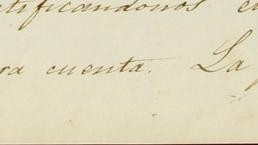 tificandonos
ra cuenta. La